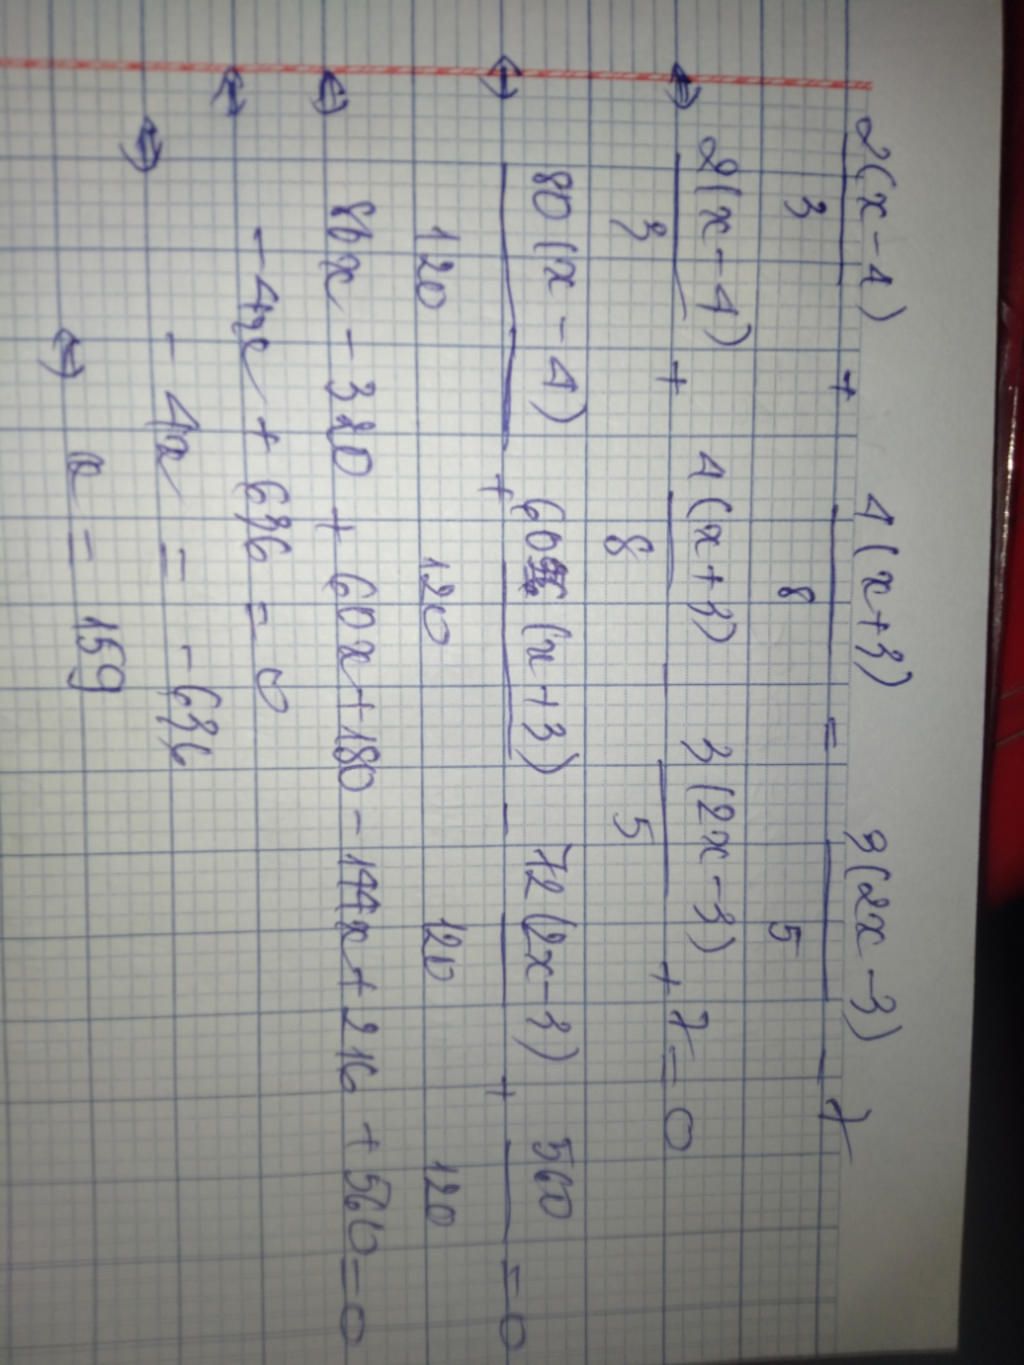 2(x-4)/3 + 4(x+3)/8 = 3(2x-3)/5 - 7
⇔ 2(x-4)/3 + 4(x+3)/8 - 3(2x-3)/5 + 7 = 0
⇔ 80(x-4)/120 + 60(x+3)/120 - 72(2x-3)/120 + 560/120 = 0
⇔ 80x - 320 + 60x + 180 - 144x + 216 + 560 = 0
⇔ -4x + 636 = 0
⇔ -4x = -636
⇔ x = 159